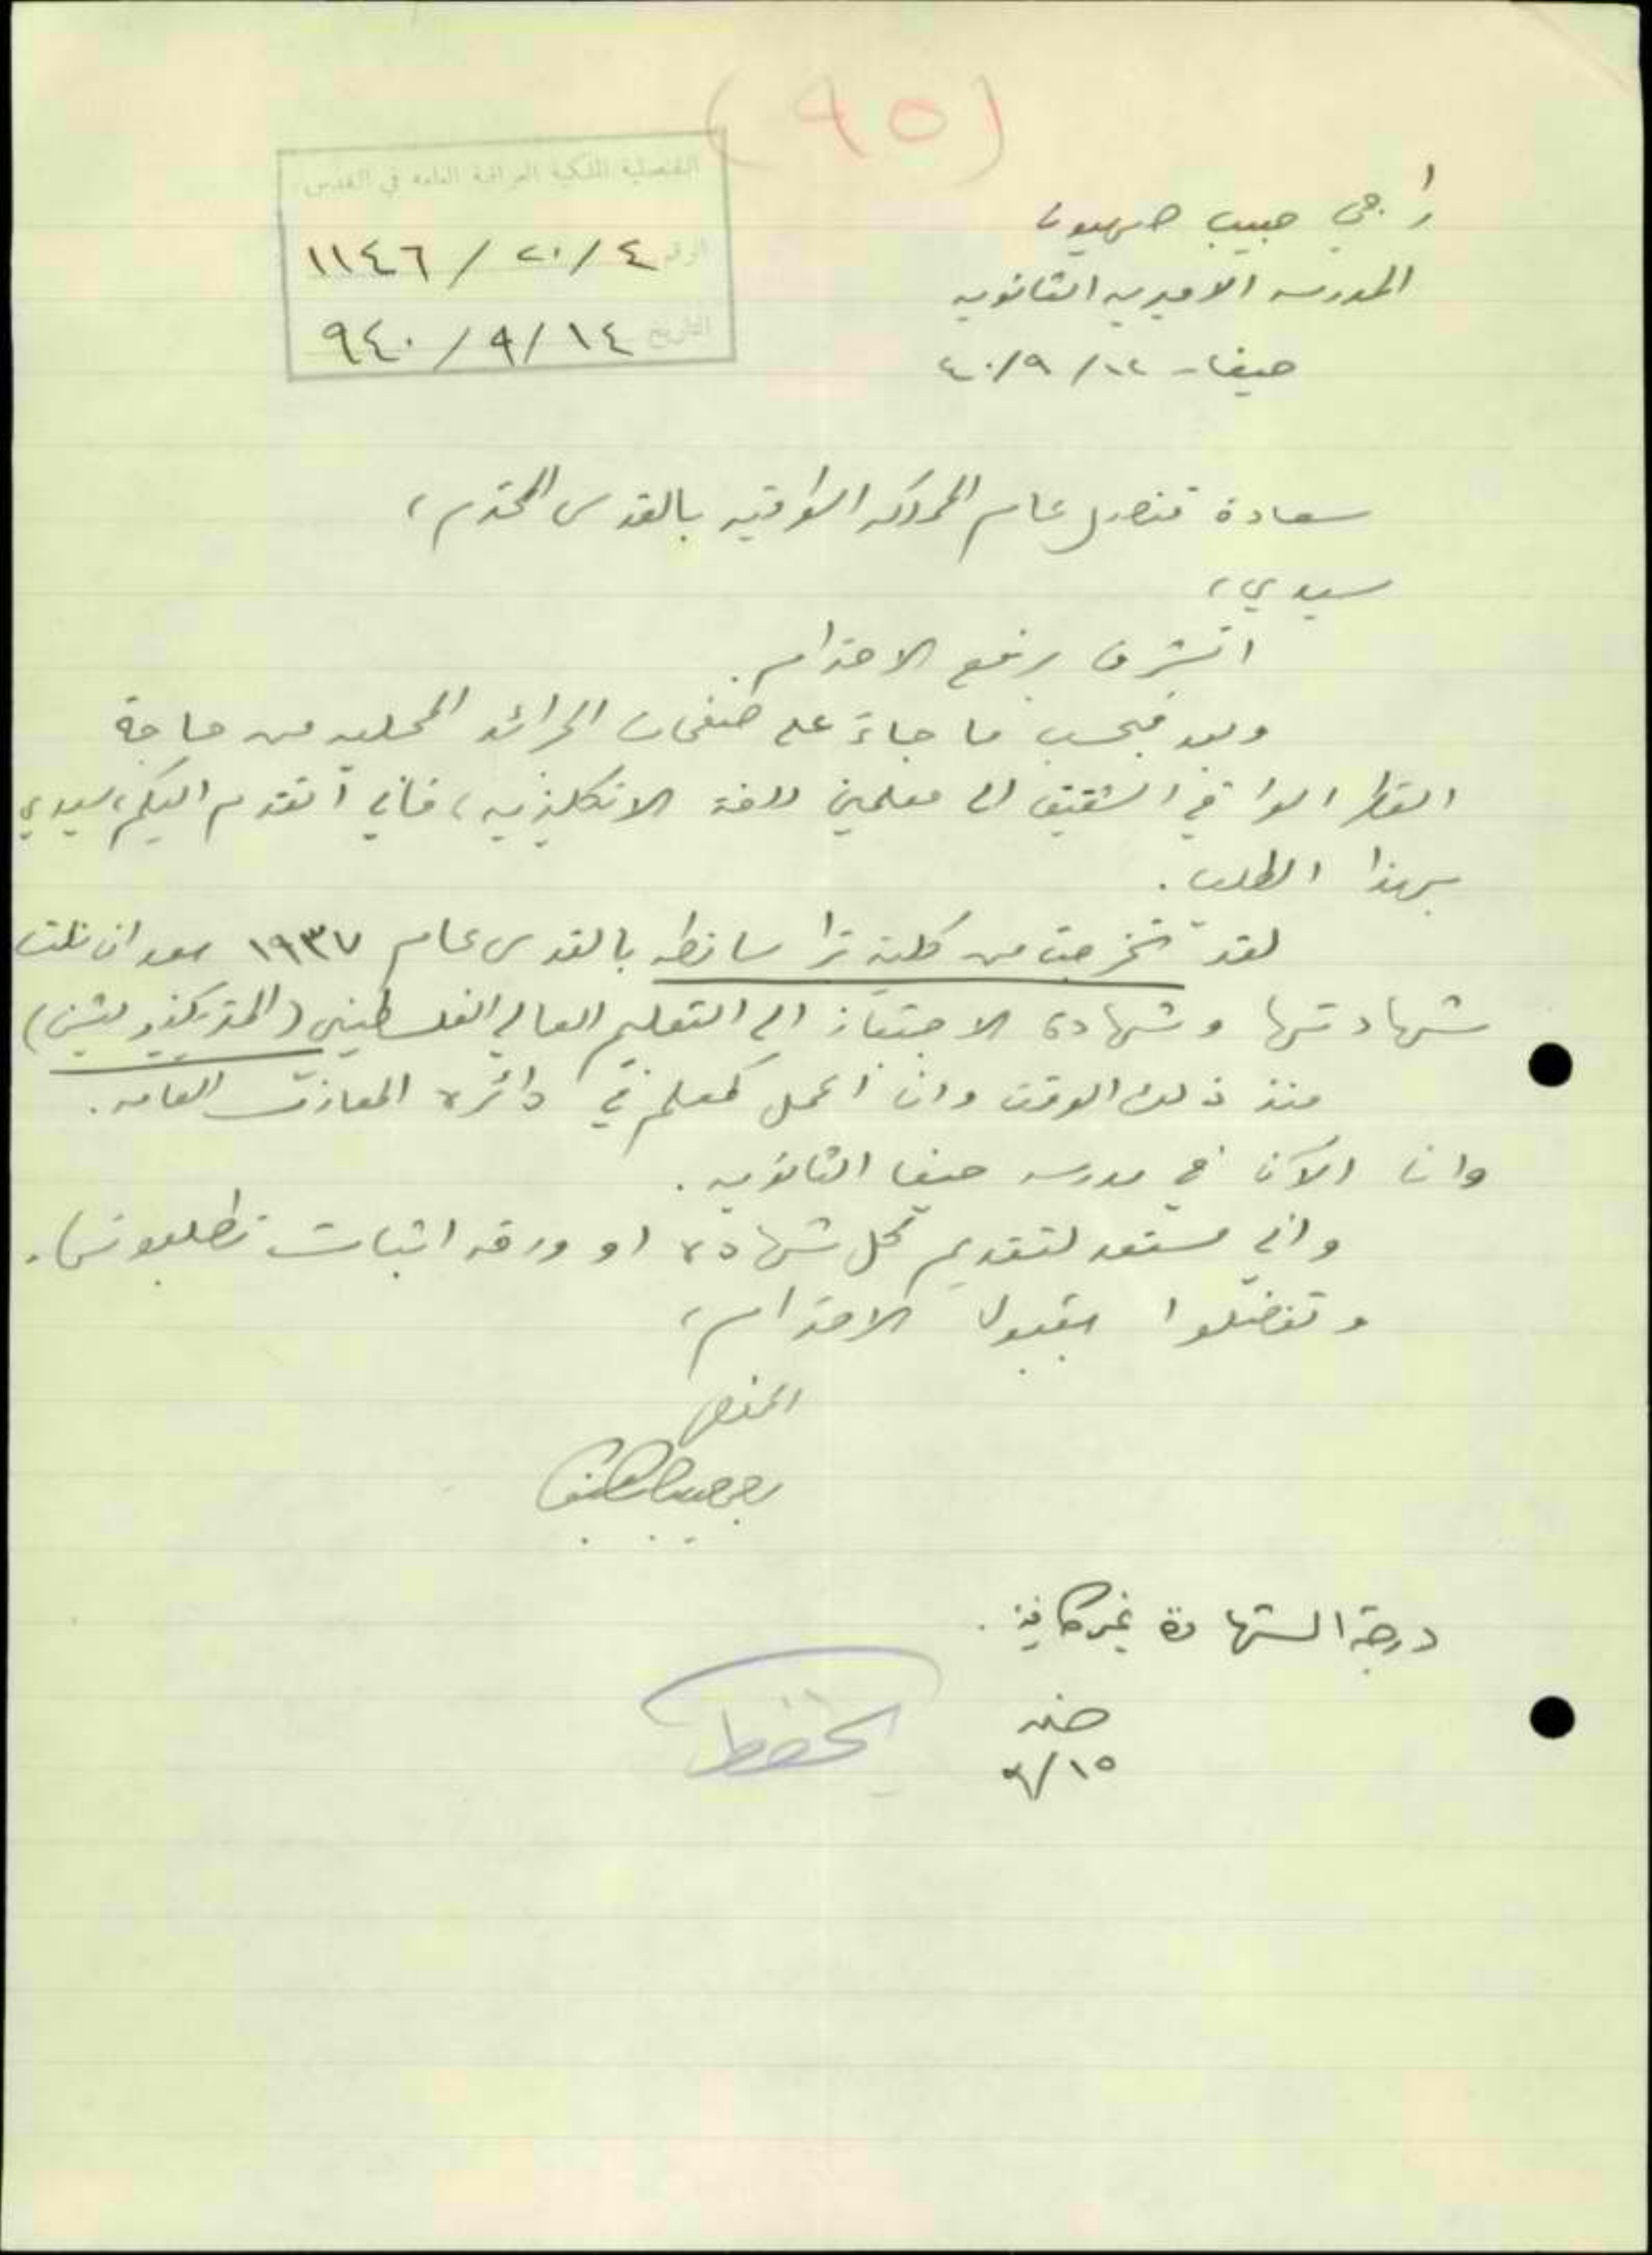 (٩٥)
القنصلية الملكية العراقية العامة في القدس
الرقم ٤/٢٠/١١٤٦
التاريخ ١٤/٩/٩٤٠
راجي حبيب صهيون
المدرسه الاميريه الثانويه
حيفا - ١٢/٩/٤٠
سعادة قنصل عام المملكه العراقيه بالقدس المحترم،
سيدي،
اتشرف برفع الاحترام.
وبعد فبحسب ما جاء على صفحات الجرائد المحليه من حاجة
القطر العراقي الشقيق الى معلمين للغة الانكليزيه، فاني أتقدم اليكم، سيدي
بهذا الطلب.
لقد تخرجت من كلية تراسانطه بالقدس عام ١٩٣٧ بعد ان نلت
شهادتها وشهادة الاجتياز الى التعليم العالي الفلسطيني (المتريكوليشن)
منذ ذلك الوقت وانا أعمل كمعلم في دائرة المعارف العامه.
وانا الآن في مدرسه حيفا الثانويه.
واني مستعد لتقديم كل شهادة او ورقه اثبات تطلبونها.
وتفضلوا بقبول الاحترام،
المخلص
درجة الشهادة غير كافية.
١٥/٩
يحفظ